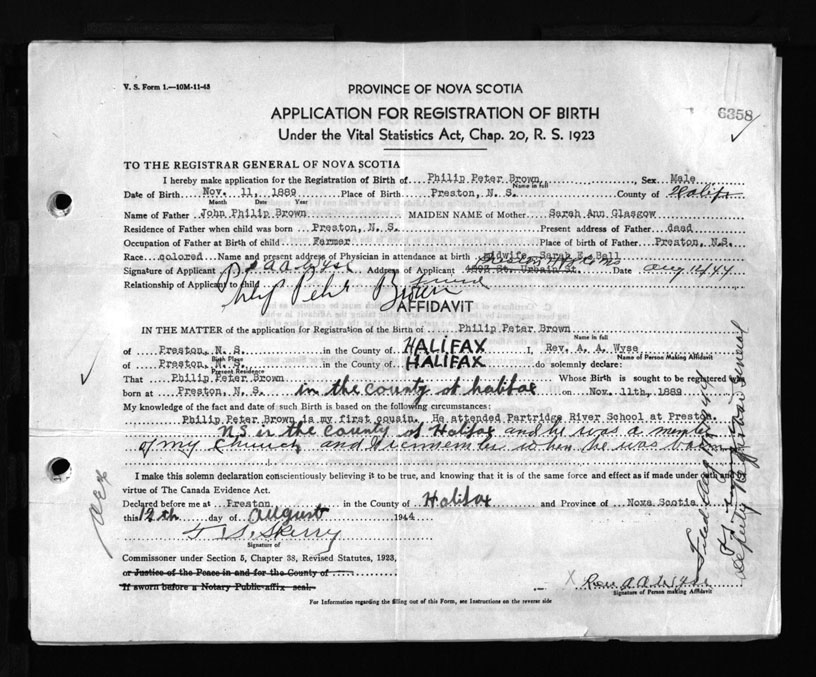 V. S. Form 1.—10M-11-43
PROVINCE OF NOVA SCOTIA
APPLICATION FOR REGISTRATION OF BIRTH
6358
Under the Vital Statistics Act, Chap. 20, R. S. 1923
TO THE REGISTRAR GENERAL OF NOVA SCOTIA
I hereby make application for the Registration of Birth of Philip Peter Brown, Sex Male
Name in full
Date of Birth Nov. 11, 1889 Place of Birth Preston, N. S. County of Halifax
Month Date Year
Name of Father John Philip Brown MAIDEN NAME of Mother Sarah Ann Glasgow
Residence of Father when child was born Preston, N. S. Present address of Father dead
Occupation of Father at Birth of child Farmer Place of Birth of Father Preston, N.S.
Race colored Name and present address of Physician in attendance at birth Midwife Sarah E. Bell
Signature of Applicant Address of Applicant St. Urbain St. Date Aug 12/44
Relationship of Applicant to child friend
Philip Peter Brown
AFFIDAVIT
IN THE MATTER of the application for Registration of the Birth of Philip Peter Brown
Name in full
of Preston, N. S. in the County of HALIFAX I, Rev. A. A. Wyse
Birth Place Name of Person Making Affidavit
of Preston, N. S. in the County of HALIFAX do solemnly declare:
Present Residence
That Philip Peter Brown Whose Birth is sought to be registered
born at Preston, N. S. in the county of halifax on Nov. 11th, 1889
My knowledge of the fact and date of such Birth is based on the following circumstances:
Philip Peter Brown is my first cousin. He attended Partridge River School at Preston.
N.S in the County of Halifax and he was a member
of my Church and I remember when he was born
I make this solemn declaration conscientiously believing it to be true, and knowing that it is of the same force and effect as if made under oath and
virtue of The Canada Evidence Act.
Declared before me at Preston in the County of Halifax and Province of Nova Scotia
this 12th day of August 1944
Signature of
Commissioner under Section 5, Chapter 38, Revised Statutes, 1923,
or Justice of the Peace in and for the County of
If sworn before a Notary Public affix seal.
X Rev A A Wyse
Signature of Person making Affidavit
For Information regarding the filling out of this Form, see Instructions on the reverse side
Deputy Registrar General